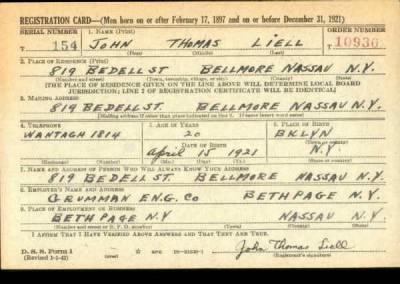 REGISTRATION CARD—(Men born on or after February 17, 1897 and on or before December 31, 1921)
SERIAL NUMBER 1. NAME (Print) ORDER NUMBER
T 154 JOHN THOMAS LIELL 10930
(First) (Middle) (Last)
2. PLACE OF RESIDENCE (Print)
819 BEDELL ST. BELLMORE NASSAU N.Y.
(Number and street) (Town, township, village, or city) (County) (State)
[THE PLACE OF RESIDENCE GIVEN ON THE LINE ABOVE WILL DETERMINE LOCAL BOARD
JURISDICTION; LINE 2 OF REGISTRATION CERTIFICATE WILL BE IDENTICAL]
3. MAILING ADDRESS
819 BEDELL ST. BELLMORE NASSAU N.Y.
[Mailing address if other than place indicated on line 2. If same insert word same]
4. TELEPHONE 5. AGE IN YEARS 6. PLACE OF BIRTH
WANTAGH 1814 20 BKLYN
DATE OF BIRTH (Town or county)
April 15 1921 N.Y.
(Exchange) (Number) (Mo.) (Day) (Yr.) (State or country)
7. NAME AND ADDRESS OF PERSON WHO WILL ALWAYS KNOW YOUR ADDRESS
819 BEDELL ST. BELLMORE NASSAU N.Y.
8. EMPLOYER'S NAME AND ADDRESS
GRUMMAN ENG. CO BETHPAGE N.Y.
9. PLACE OF EMPLOYMENT OR BUSINESS
BETHPAGE N.Y NASSAU N.Y.
(Number and street or R. F. D. number) (Town) (County) (State)
I AFFIRM THAT I HAVE VERIFIED ABOVE ANSWERS AND THAT THEY ARE TRUE.
D. S. S. Form 1
(Revised 1-1-42) John Thomas Liell
(Registrant's signature)